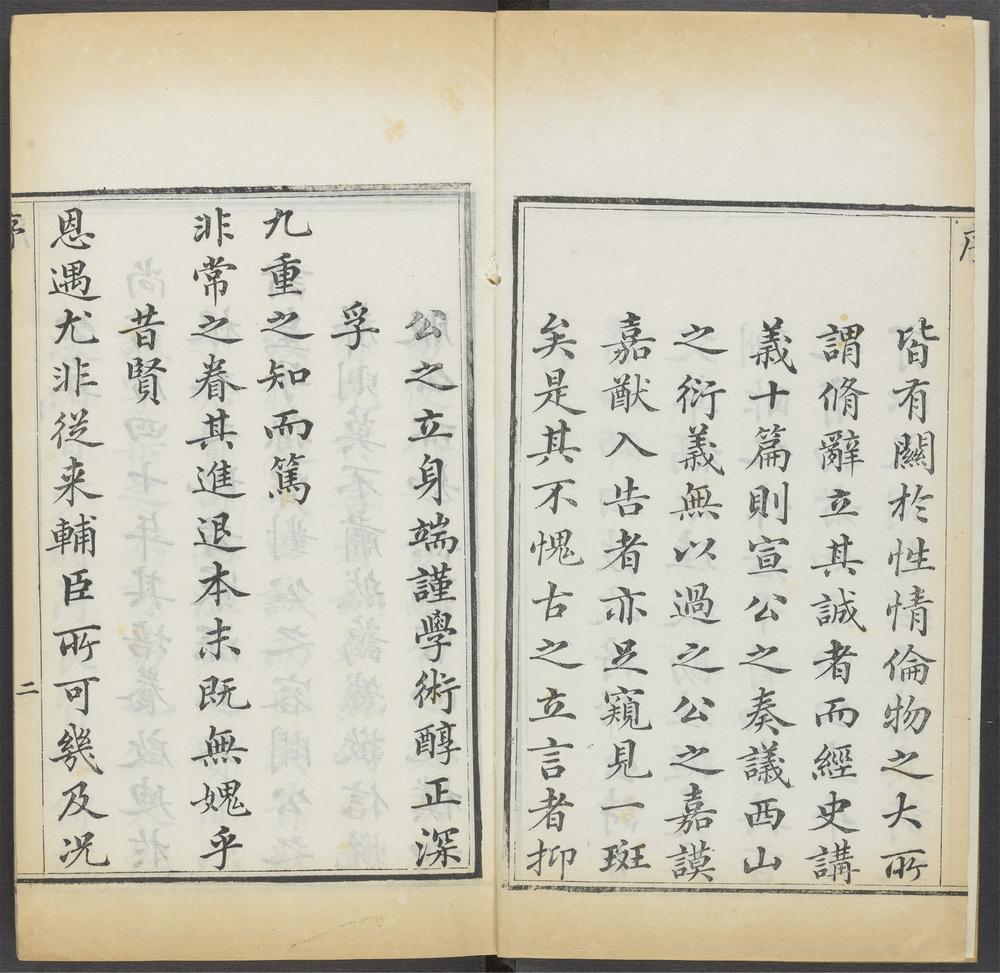 皆有關於性情倫物之大所
謂脩辭立其誠者而經史講
義十篇則宣公之奏議西山
之衍義無以過之公之嘉謨
嘉猷入告者亦足窺見一斑
矣是其不愧古之立言者抑
公之立身端謹學術醇正深
孚
九重之知而篤
非常之眷其進退本末既無媿乎
昔賢
恩遇尤非從来輔臣所可幾及况
序
二